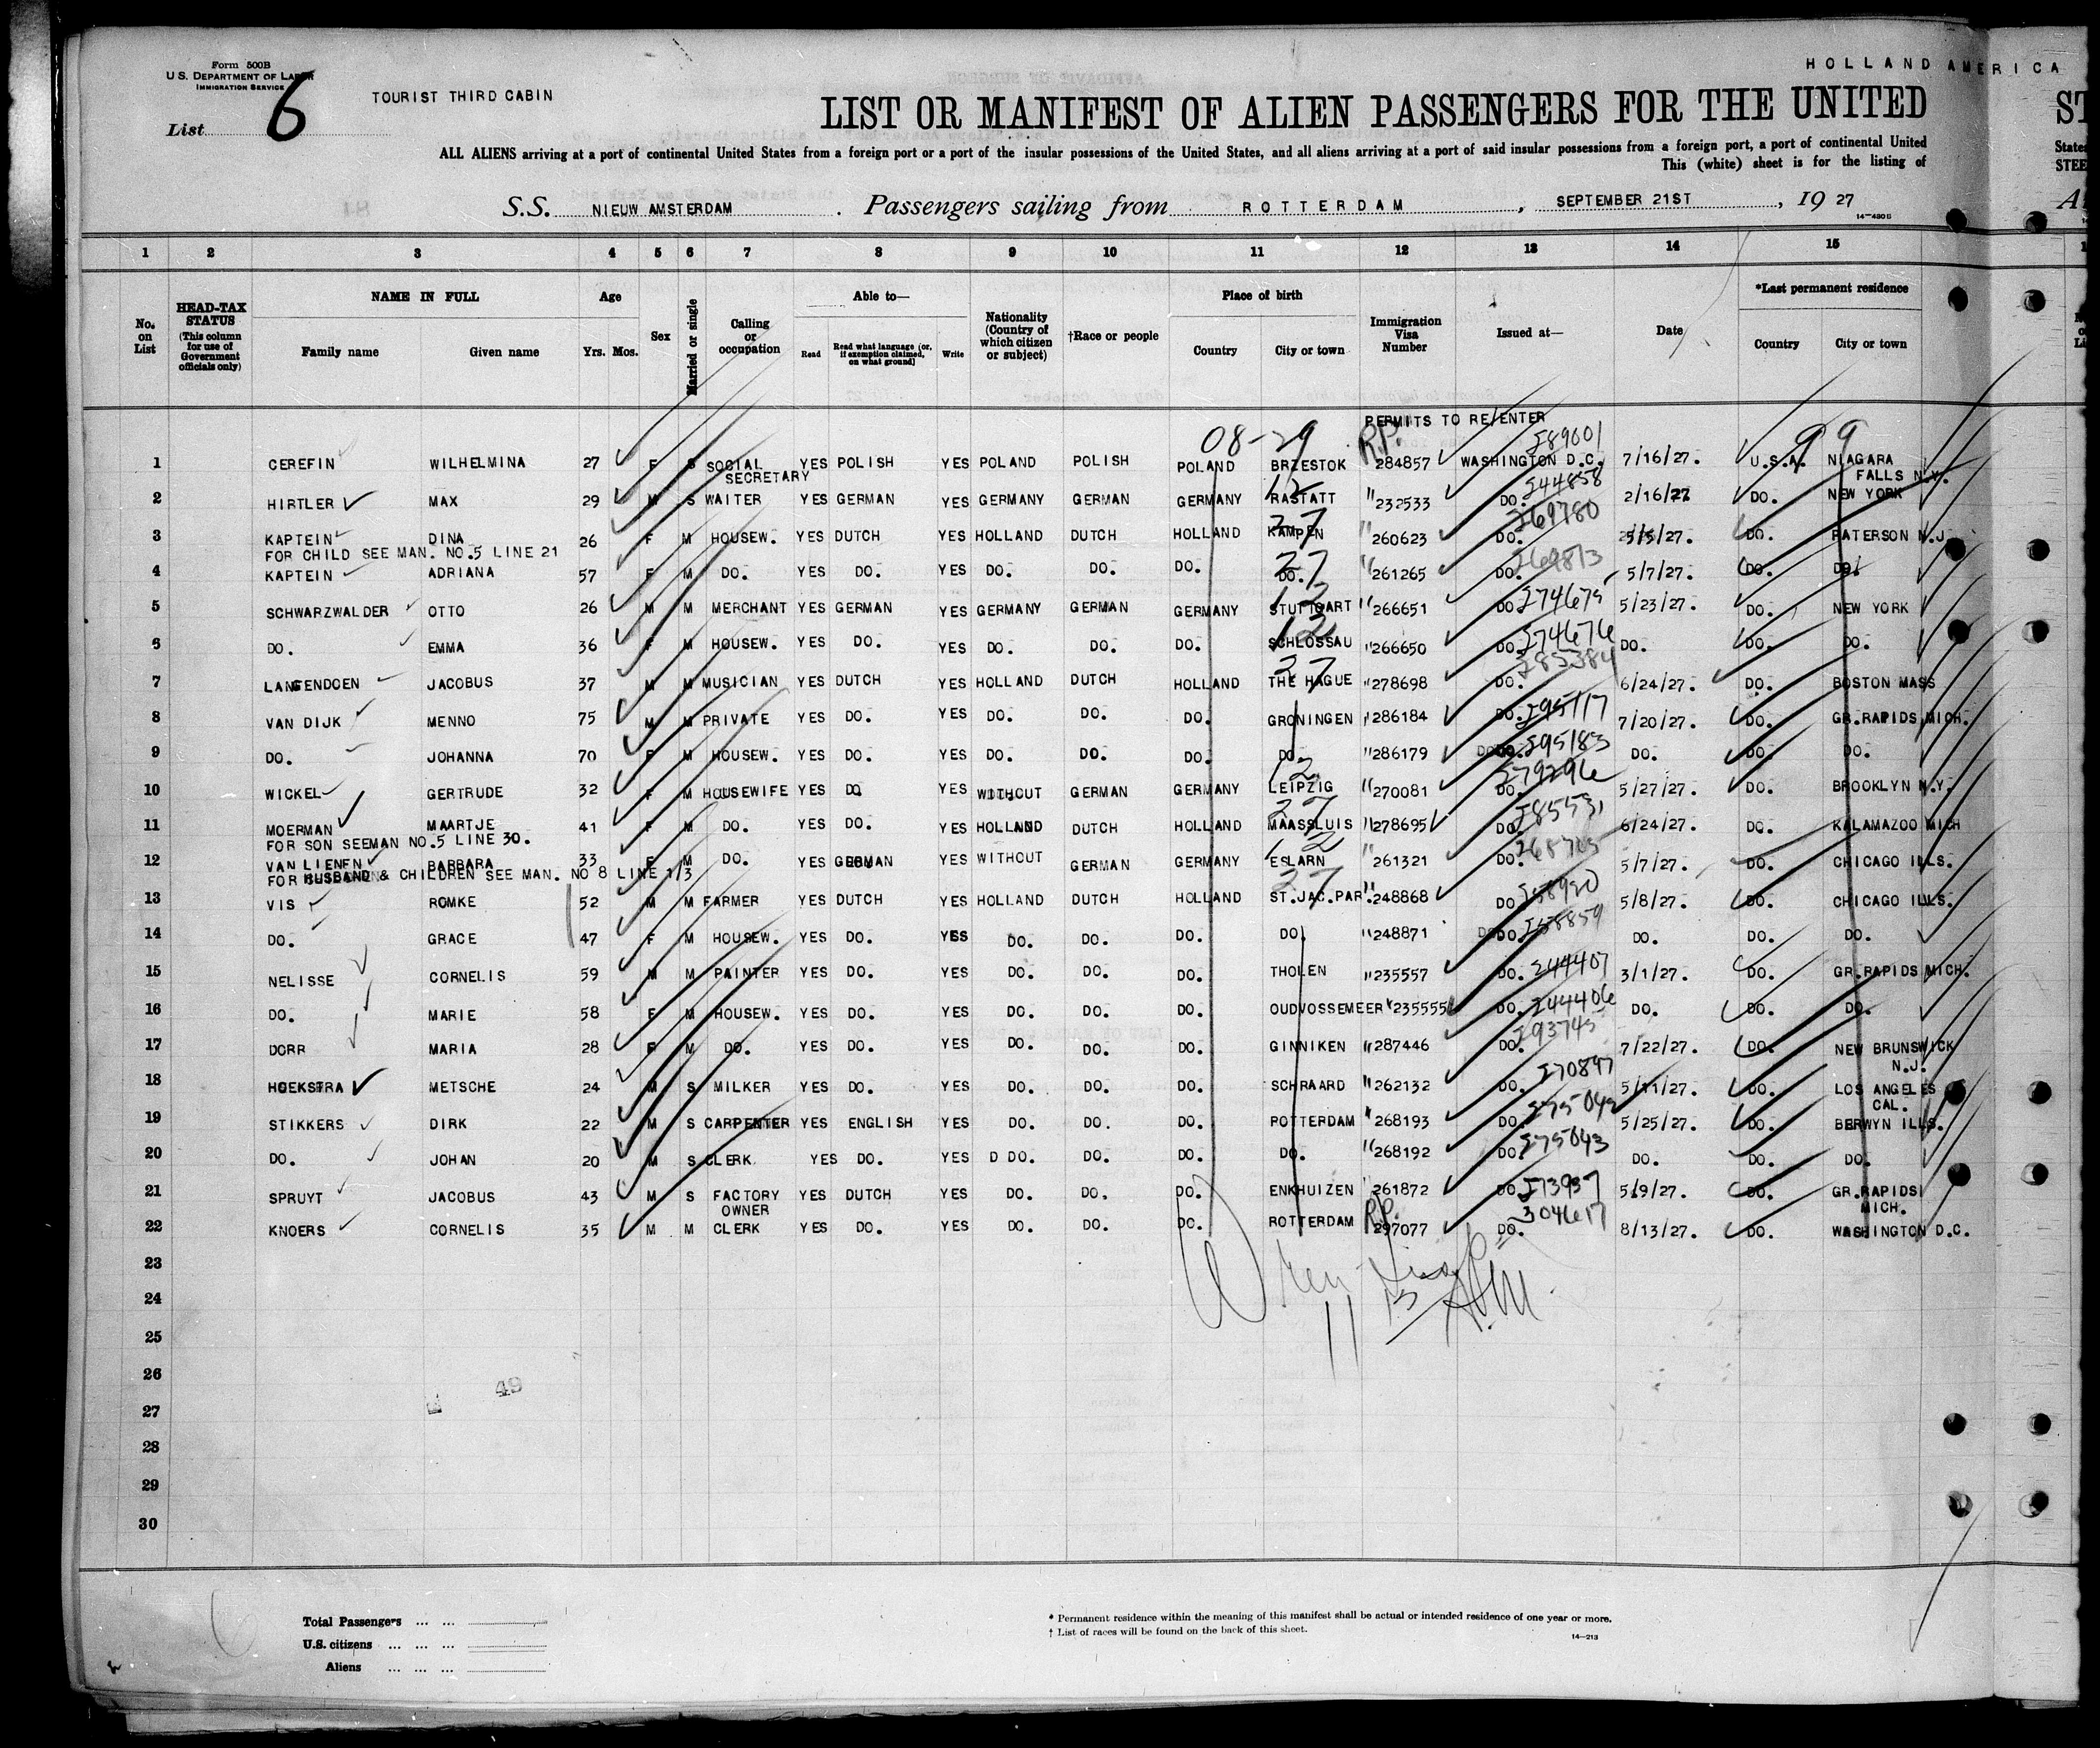 Form 500B
U.S. DEPARTMENT OF LABOR
IMMIGRATION SERVICE
List 6
TOURIST THIRD CABIN
HOLLAND AMERICA
LIST OR MANIFEST OF ALIEN PASSENGERS FOR THE UNITED
ALL ALIENS arriving at a port of continental United States from a foreign port or a port of the insular possessions of the United States, and all aliens arriving at a port of said insular possessions from a foreign port, a port of continental United
This (white) sheet is for the listing of
S.S. NIEUW AMSTERDAM. Passengers sailing from ROTTERDAM, SEPTEMBER 21ST, 19 27
14-480B
1 2 3 4 5 6 7 8 9 10 11 12 13 14 15
No. on List
HEAD-TAX STATUS (This column for use of Government officials only)
NAME IN FULL Family name Given name
Age Yrs. Mos.
Sex
Married or single
Calling or occupation
Able to— Read Read what language (or, if exemption claimed, on what ground) Write
Nationality (Country of which citizen or subject)
†Race or people
Place of birth Country City or town
Immigration Visa Number
Issued at—
Date
*Last permanent residence Country City or town
PERMITS TO RE/ENTER
08-29 R.P. 289001 99
1 CEREFIN WILHELMINA 27 F S SOCIAL SECRETARY YES POLISH YES POLAND POLISH POLAND BRZESTOK 284857 WASHINGTON D.C. 7/16/27. U.S.A. NIAGARA FALLS N.Y.
2 HIRTLER MAX 29 M S WAITER YES GERMAN YES GERMANY GERMAN GERMANY RASTATT 12 "232533 DO. 244858 2/16/27 DO. NEW YORK
3 KAPTEIN DINA 26 F M HOUSEW. YES DUTCH YES HOLLAND DUTCH HOLLAND KAMPEN 27 "260623 DO. 269780 5/5/27. DO. PATERSON N.J.
FOR CHILD SEE MAN. NO.5 LINE 21
4 KAPTEIN ADRIANA 57 F M DO. YES DO. YES DO. DO. DO. DO. 27 "261265 DO. 269813 5/7/27. DO. DO.
5 SCHWARZWALDER OTTO 26 M M MERCHANT YES GERMAN YES GERMANY GERMAN GERMANY STUTTGART 12 "266651 DO. 274675 5/23/27. DO. NEW YORK
6 DO. EMMA 36 F M HOUSEW. YES DO. YES DO. DO. DO. SCHLOSSAU 12 "266650 DO. 274676 DO. DO. DO.
7 LANGENDOEN JACOBUS 37 M M MUSICIAN YES DUTCH YES HOLLAND DUTCH HOLLAND THE HAGUE 27 "278698 DO. 285384 6/24/27. DO. BOSTON MASS
8 VAN DIJK MENNO 75 M M PRIVATE YES DO. YES DO. DO. DO. GRONINGEN "286184 DO. 295117 7/20/27. DO. GR.RAPIDS MICH.
9 DO. JOHANNA 70 F M HOUSEW. YES DO. YES DO. DO. DO. DO. "286179 DO. 295183 DO. DO. DO.
10 WICKEL GERTRUDE 32 F M HOUSEWIFE YES DO. YES WITHOUT GERMAN GERMANY LEIPZIG 12 "270081 DO. 279296 5/27/27. DO. BROOKLYN N.Y.
11 MOERMAN MAARTJE 41 F M DO. YES DO. YES HOLLAND DUTCH HOLLAND MAASSLUIS 27 "278695 DO. 285531 6/24/27. DO. KALAMAZOO MICH
FOR SON SEEMAN NO.5 LINE 30.
12 VAN LIENEN BARBARA 33 F M DO. YES GERMAN YES WITHOUT GERMAN GERMANY ESLARN 12 "261321 DO. 5/7/27. DO. CHICAGO ILLS.
FOR HUSBAND & CHILDREN SEE MAN. NO 8 LINE 1/3
13 VIS ROMKE 52 M M FARMER YES DUTCH YES HOLLAND DUTCH HOLLAND ST.JAC.PAR. 27 "248868 DO. 258920 5/8/27. DO. CHICAGO ILLS.
14 DO. GRACE 47 F M HOUSEW. YES DO. YES DO. DO. DO. DO. "248871 DO. 258859 DO. DO. DO.
15 NELISSE CORNELIS 59 M M PAINTER YES DO. YES DO. DO. DO. THOLEN "235557 DO. 244407 3/1/27. DO. GR.RAPIDS MICH.
16 DO. MARIE 58 F M HOUSEW. YES DO. YES DO. DO. DO. OUDVOSSEMEER "235555 DO. 244406 DO. DO. DO.
17 DORR MARIA 28 F M DO. YES DO. YES DO. DO. DO. GINNIKEN "287446 DO. 293745 7/22/27. DO. NEW BRUNSWICK N.J.
18 HOEKSTRA METSCHE 24 M S MILKER YES DO. YES DO. DO. DO. SCHRAARD "262132 DO. 270897 5/11/27. DO. LOS ANGELES CAL.
19 STIKKERS DIRK 22 M S CARPENTER YES ENGLISH YES DO. DO. DO. ROTTERDAM "268193 DO. 275042 5/25/27. DO. BERWYN ILLS.
20 DO. JOHAN 20 M S CLERK YES DO. YES D DO. DO. DO. DO. "268192 DO. 275043 DO. DO. DO.
21 SPRUYT JACOBUS 43 M S FACTORY OWNER YES DUTCH YES DO. DO. DO. ENKHUIZEN "261872 DO. 273937 5/9/27. DO. GR.RAPIDS MICH.
22 KNOERS CORNELIS 35 M M CLERK YES DO. YES DO. DO. DO. ROTTERDAM R.P. 297077 DO. 304617 8/13/27. DO. WASHINGTON D.C.
23
24
25
26
27
28
29
30
49
Total Passengers
U.S. citizens
Aliens
* Permanent residence within the meaning of this manifest shall be actual or intended residence of one year or more.
† List of races will be found on the back of this sheet.
14-213